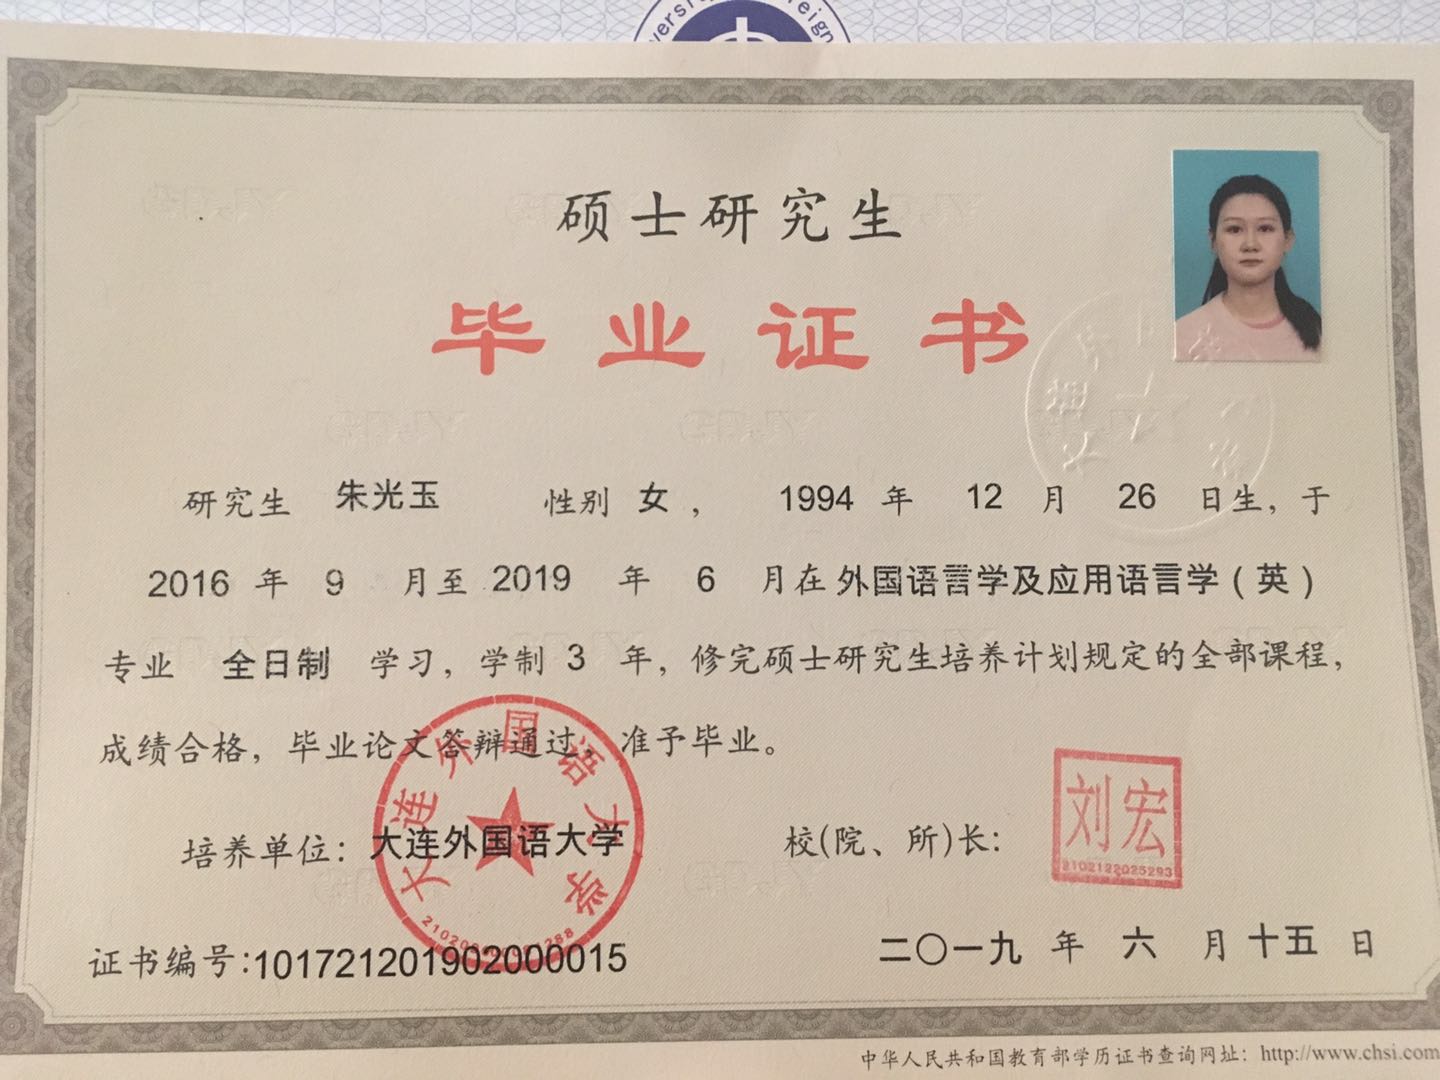 硕士研究生
毕业证书
研究生 朱光玉 性别 女， 1994 年 12 月 26 日生，于
2016 年 9 月至 2019 年 6 月在 外国语言学及应用语言学（英）
专业 全日制 学习，学制 3 年，修完硕士研究生培养计划规定的全部课程，
成绩合格，毕业论文答辩通过，准予毕业。
培养单位：大连外国语大学 校(院、所)长：
大连外国语大学
刘宏
2102122025293
证书编号：101721201902000015 二〇一九 年 六 月 十五 日
中华人民共和国教育部学历证书查询网址：http://www.chsi.com